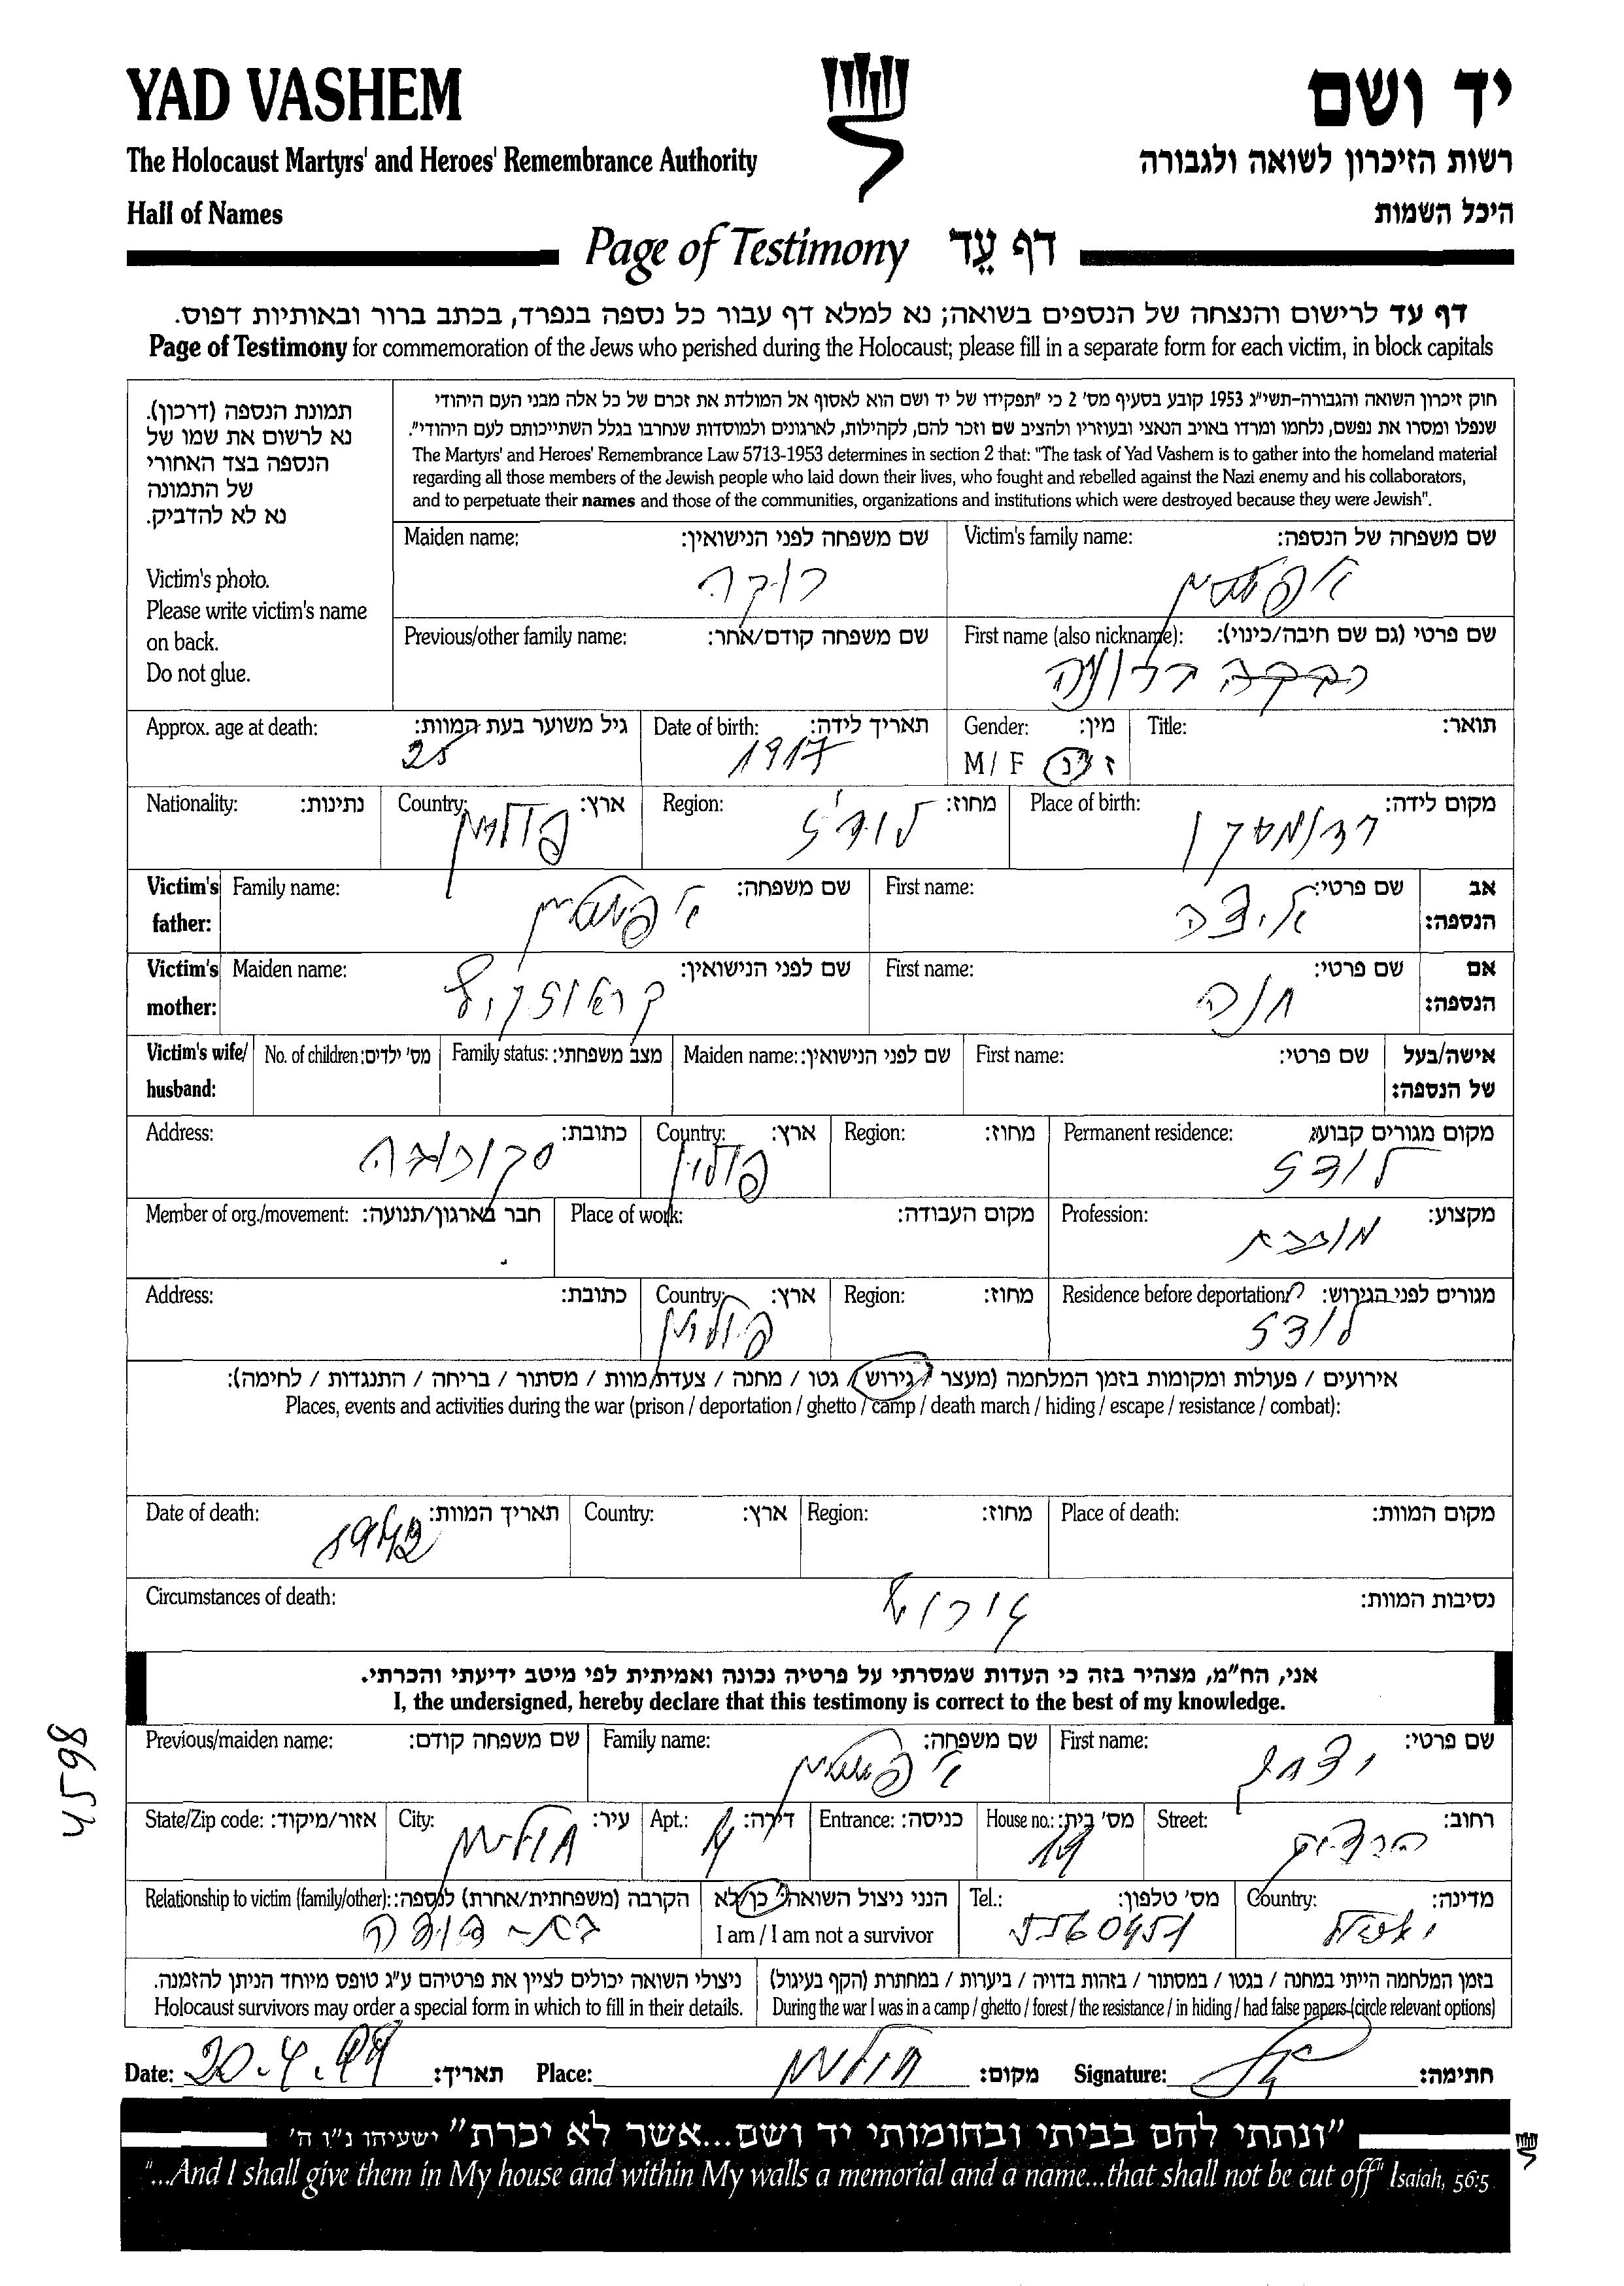 YAD VASHEM
יד ושם
The Holocaust Martyrs' and Heroes' Remembrance Authority
רשות הזיכרון לשואה ולגבורה
Hall of Names
היכל השמות
Page of Testimony דף עֵד
דף עד לרישום והנצחה של הנספים בשואה; נא למלא דף עבור כל נספה בנפרד, בכתב ברור ובאותיות דפוס.
Page of Testimony for commemoration of the Jews who perished during the Holocaust; please fill in a separate form for each victim, in block capitals
תמונת הנספה (דרכון).
נא לרשום את שמו של
הנספה בצד האחורי
של התמונה
נא לא להדביק.
Victim's photo.
Please write victim's name
on back.
Do not glue.
חוק זיכרון השואה והגבורה-תשי"ג 1953 קובע בסעיף מס' 2 כי "תפקידו של יד ושם הוא לאסוף אל המולדת את זכרם של כל אלה מבני העם היהודי
שנפלו ומסרו את נפשם, נלחמו ומרדו באויב הנאצי ובעוזריו ולהציב שם וזכר להם, לקהילות, לארגונים ולמוסדות שנחרבו בגלל השתייכותם לעם היהודי".
The Martyrs' and Heroes' Remembrance Law 5713-1953 determines in section 2 that: "The task of Yad Vashem is to gather into the homeland material
regarding all those members of the Jewish people who laid down their lives, who fought and rebelled against the Nazi enemy and his collaborators,
and to perpetuate their names and those of the communities, organizations and institutions which were destroyed because they were Jewish".
Victim's family name: שם משפחה של הנספה:
Maiden name: שם משפחה לפני הנישואין:
First name (also nickname): שם פרטי (גם שם חיבה/כינוי):
Previous/other family name: שם משפחה קודם/אחר:
Title: תואר:
Gender: מין:
M / F ז / נ
Date of birth: תאריך לידה:
1917
Approx. age at death: גיל משוער בעת המוות:
25
Place of birth: מקום לידה:
Region: מחוז:
לודז'
Country: ארץ:
פולין
Nationality: נתינות:
Victim's father: אב הנספה:
First name: שם פרטי:
Family name: שם משפחה:
Victim's mother: אם הנספה:
First name: שם פרטי:
חנה
Maiden name: שם לפני הנישואין:
Victim's wife/ husband: אישה/בעל של הנספה:
First name: שם פרטי:
Maiden name: שם לפני הנישואין:
Family status: מצב משפחתי:
No. of children: מס' ילדים:
Permanent residence: מקום מגורים קבוע:
לודז
Region: מחוז:
Country: ארץ:
פולין
Address: כתובת:
Profession: מקצוע:
Place of work: מקום העבודה:
Member of org./movement: חבר בארגון/תנועה:
Residence before deportation: מגורים לפני הגירוש:
לודז
Region: מחוז:
Country: ארץ:
פולין
Address: כתובת:
אירועים / פעולות ומקומות בזמן המלחמה (מעצר / גירוש / גטו / מחנה / צעדת מוות / מסתור / בריחה / התנגדות / לחימה):
Places, events and activities during the war (prison / deportation / ghetto / camp / death march / hiding / escape / resistance / combat):
Place of death: מקום המוות:
Region: מחוז:
Country: ארץ:
Date of death: תאריך המוות:
1942
Circumstances of death: נסיבות המוות:
גירוש
אני, הח"מ, מצהיר בזה כי העדות שמסרתי על פרטיה נכונה ואמיתית לפי מיטב ידיעתי והכרתי.
I, the undersigned, hereby declare that this testimony is correct to the best of my knowledge.
First name: שם פרטי:
יצחק
Family name: שם משפחה:
Previous/maiden name: שם משפחה קודם:
Street: רחוב:
House no.: מס' בית:
19
Entrance: כניסה:
Apt.: דירה:
4
City: עיר:
חולון
State/Zip code: אזור/מיקוד:
Country: מדינה:
ישראל
Tel.: מס' טלפון:
5560451
הנני ניצול השואה כן/לא
I am / I am not a survivor
Relationship to victim (family/other): הקרבה (משפחתית/אחרת) לנספה:
בת- דודה
בזמן המלחמה הייתי במחנה / בגטו / במסתור / בזהות בדויה / ביערות / במחתרת (הקף בעיגול)
During the war I was in a camp / ghetto / forest / the resistance / in hiding / had false papers (circle relevant options)
ניצולי השואה יכולים לציין את פרטיהם ע"ג טופס מיוחד הניתן להזמנה.
Holocaust survivors may order a special form in which to fill in their details.
Date: 20.4.99 תאריך: Place: חולון מקום: Signature: חתימה:
"ונתתי להם בביתי ובחומותי יד ושם...אשר לא יכרת" ישעיהו נ"ו ה'
"...And I shall give them in My house and within My walls a memorial and a name...that shall not be cut off" Isaiah, 56:5
4598